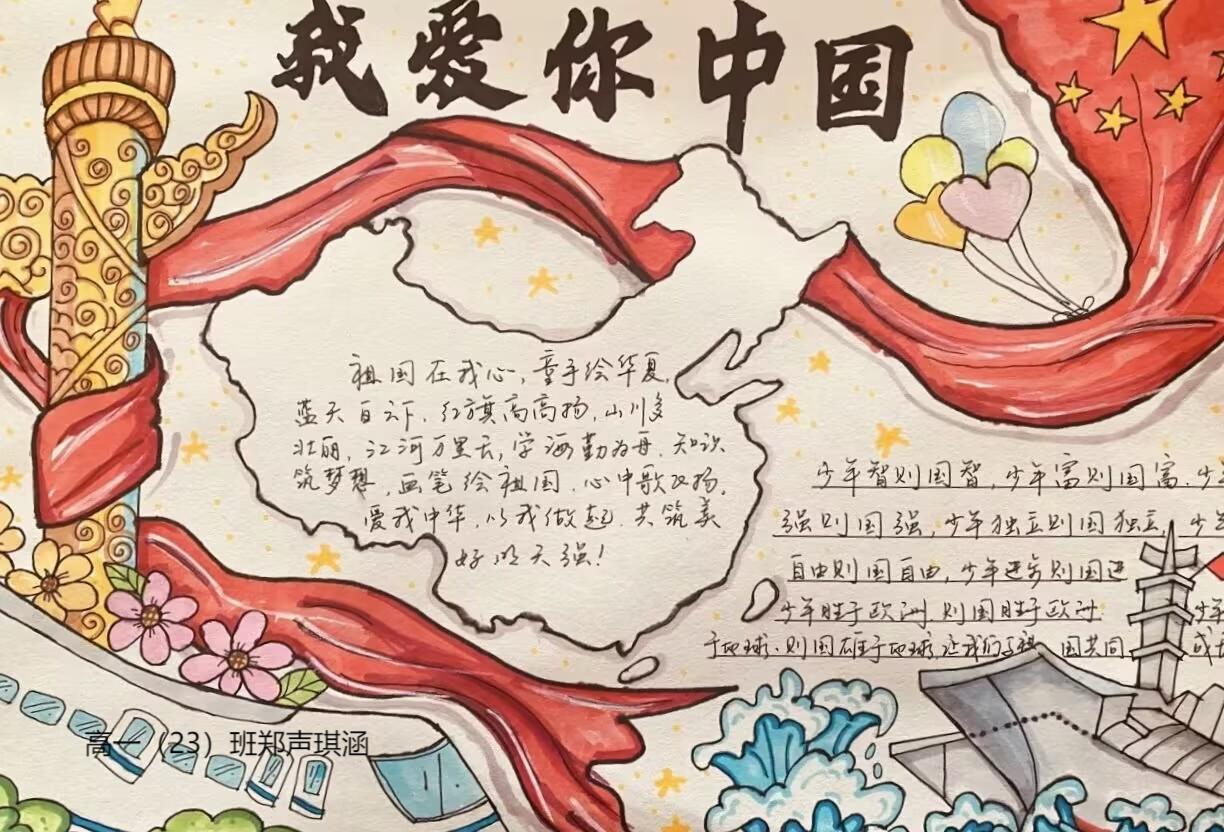 我爱你中国
祖国在我心,童手绘华夏,
蓝天白云下,红旗高高扬,山川多
壮丽,江河万里长,学海勤为舟,知识
筑梦想,画笔绘祖国,心中歌飞扬,
爱我中华,从我做起,共筑美
好明天强!
少年智则国智,少年富则国富,少
强则国强,少年独立则国独立,少
自由则国自由,少年进步则国进
少年胜于欧洲,则国胜于欧洲 少年
于地球,则国雄于地球,让我们 国共同 成
高一（23）班郑声琪涵